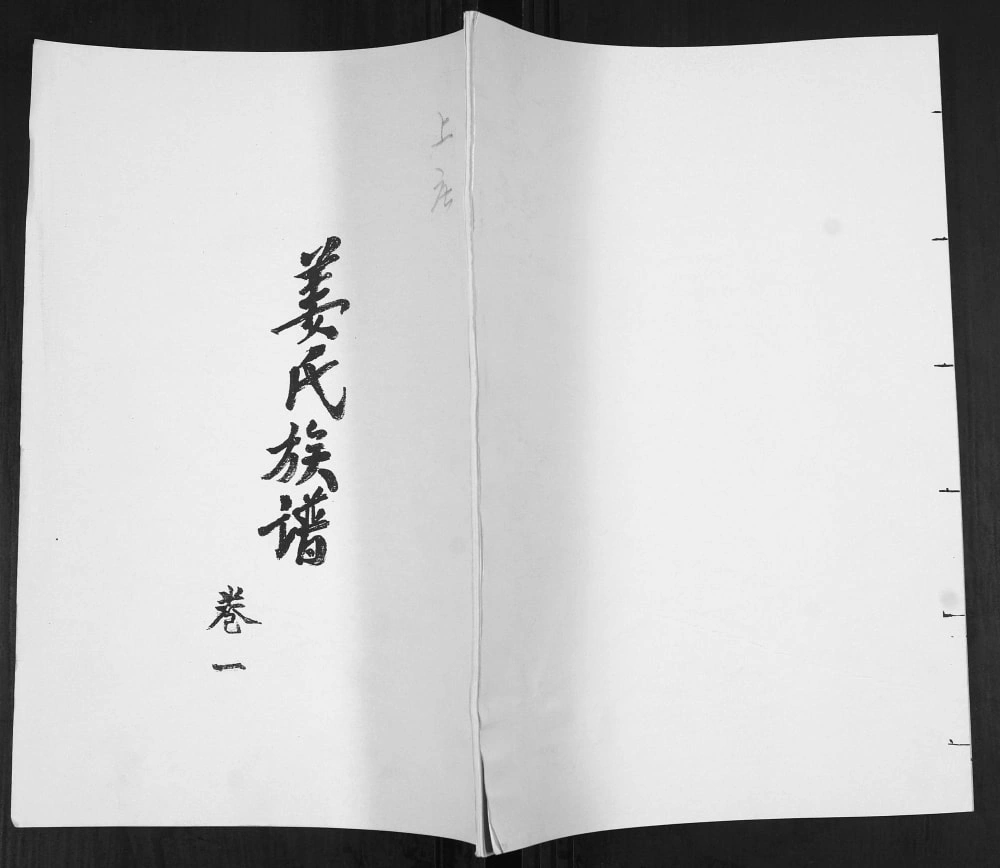 上庄
姜氏族谱
卷一